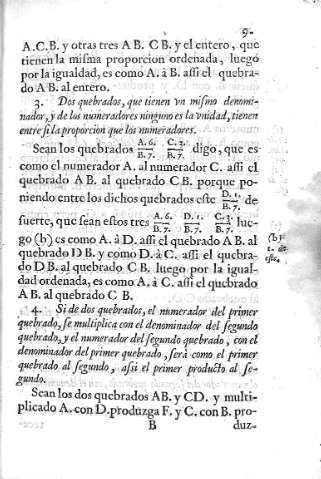 9.
A.C.B. y otras tres A B. C B. y el entero, que
tienen la misma proporcion ordenada, luego
por la igualdad, es como A. à B. assi el quebra-
do A B. al entero.
3. Dos quebrados, que tienen vn mismo denomi-
nador, y de los numeradores ninguno es la vnidad, tienen
entre si la proporcion que los numeradores.
Sean los quebrados A.6./B.7. C.3./B.7. digo, que es
como el numerador A. al numerador C. assi el
quebrado A B. al quebrado C B. porque po-
niendo entre los dichos quebrados este D.1./B.7. de
suerte, que sean estos tres A.6./B.7. D.1./B.7. C.3./B.7. lue-
go (b) es como A. à D. assi el quebrado A B. al
quebrado D B. y como D. à C. assi el quebra-
do D B. al quebrado C B. luego por la igual-
dad ordenada, es como A. à C. assi el quebrado
A B. al quebrado C B.
(b)
1. de
este.
4. Si de dos quebrados, el numerador del primer
quebrado, se multiplica con el denominador del segundo
quebrado, y el numerador del segundo quebrado, con el
denominador del primer quebrado, serà como el primer
quebrado al segundo, assi el primer producto al se-
gundo.
Sean los dos quebrados AB. y CD. y multi-
plicado A. con D. produzga F. y C. con B. pro-
B duz-